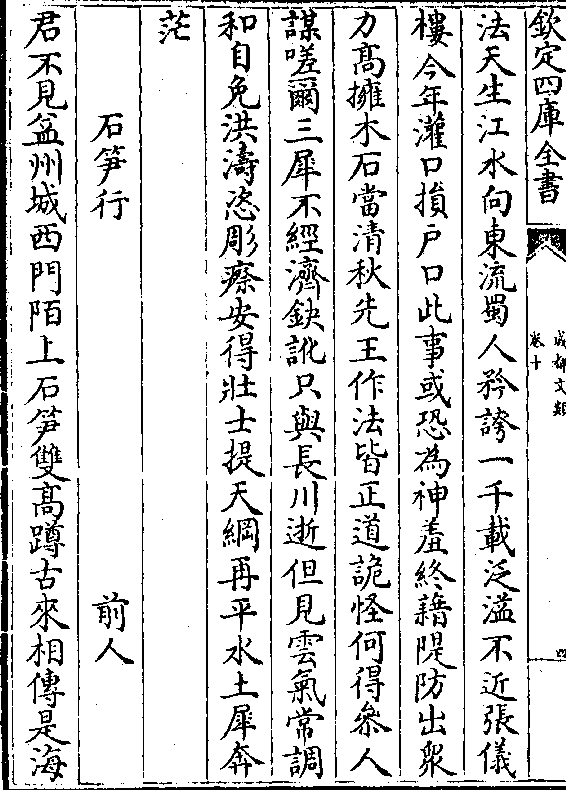 欽定四庫全書
成都文類
卷十
四
法天生江水向東流蜀人矜誇一千載泛溢不近張儀
樓今年灌口損戶口此事或恐為神羞終藉隄防出衆
力髙擁木石當清秋先王作法皆正道詭怪何得參人
謀嗟爾三犀不經濟缺訛只與長川逝但見雲氣常調
和自免洪濤恣彫瘵安得壯士提天綱再平水土犀奔
茫
石笋行　前人
君不見益州城西門陌上石笋雙髙蹲古來相傳是海